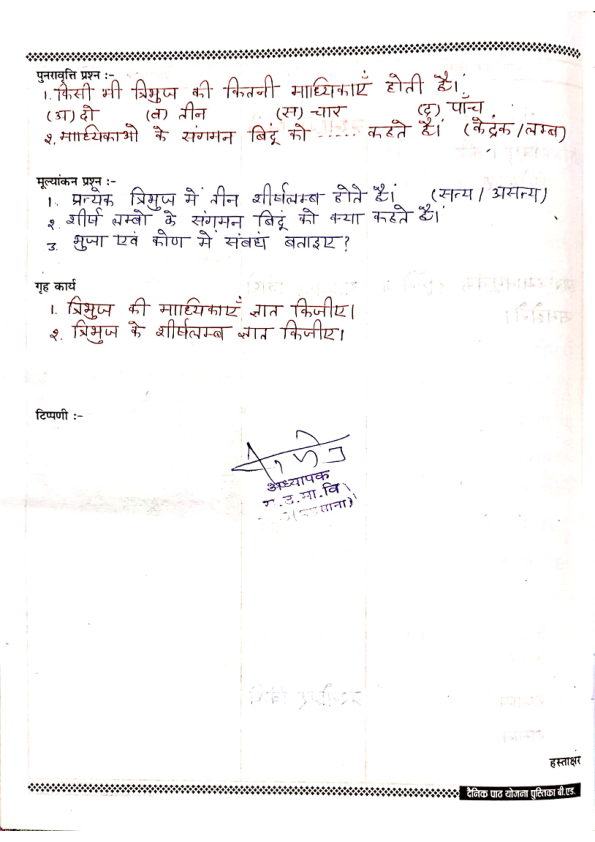 पुनरावृत्ति प्रश्न :-
1. किसी भी त्रिभुज की कितनी माध्यिकाएँ होती है।
(अ) दो (ब) तीन (स) चार (द) पाँच
2. माध्यिकाओ के संगमन बिंदू को ..... कहते है। (केंद्रक / लम्ब)
मूल्यांकन प्रश्न :-
1. प्रत्येक त्रिभुज में तीन शीर्षलम्ब होते है। (सत्य / असत्य)
2. शीर्ष लम्बो के संगमन बिंदू को क्या कहते है।
3. भुजा एवं कोण मे संबधं बताइए?
गृह कार्य
1. त्रिभुज की माध्यिकाएँ ज्ञात किजीए।
2. त्रिभुज के शीर्षलम्ब ज्ञात किजीए।
टिप्पणी :-
अध्यापक
उ.मा.वि
हस्ताक्षर
दैनिक पाठ योजना पुस्तिका बी.एड.